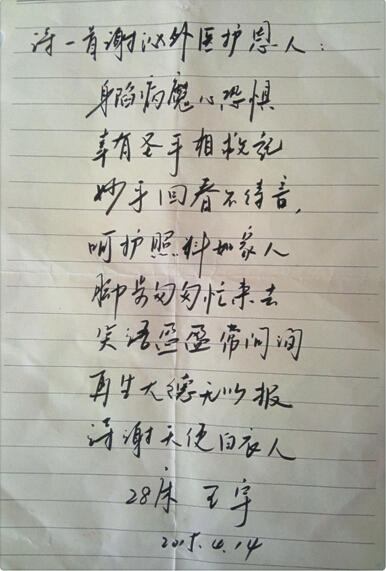 诗一首谢泌外医护恩人：
身陷病魔心恐惧
幸有圣手相救
妙手回春不待言，
呵护照料如家人
脚步匆匆忙来去
笑语盈盈常问询
再生大德无以报
诗谢天使白衣人
28床 王宇
2015.4.14